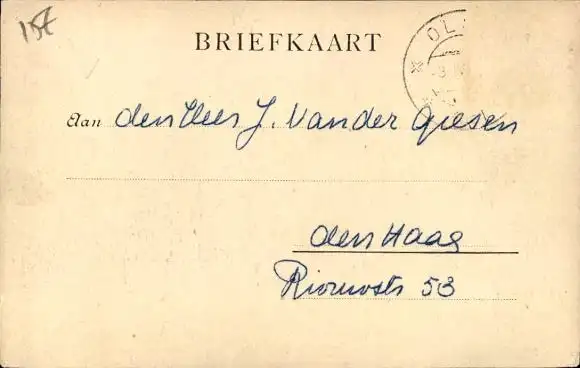 157
BRIEFKAART
OL
Aan den Heer J. Van der Giesen
den Haag
53